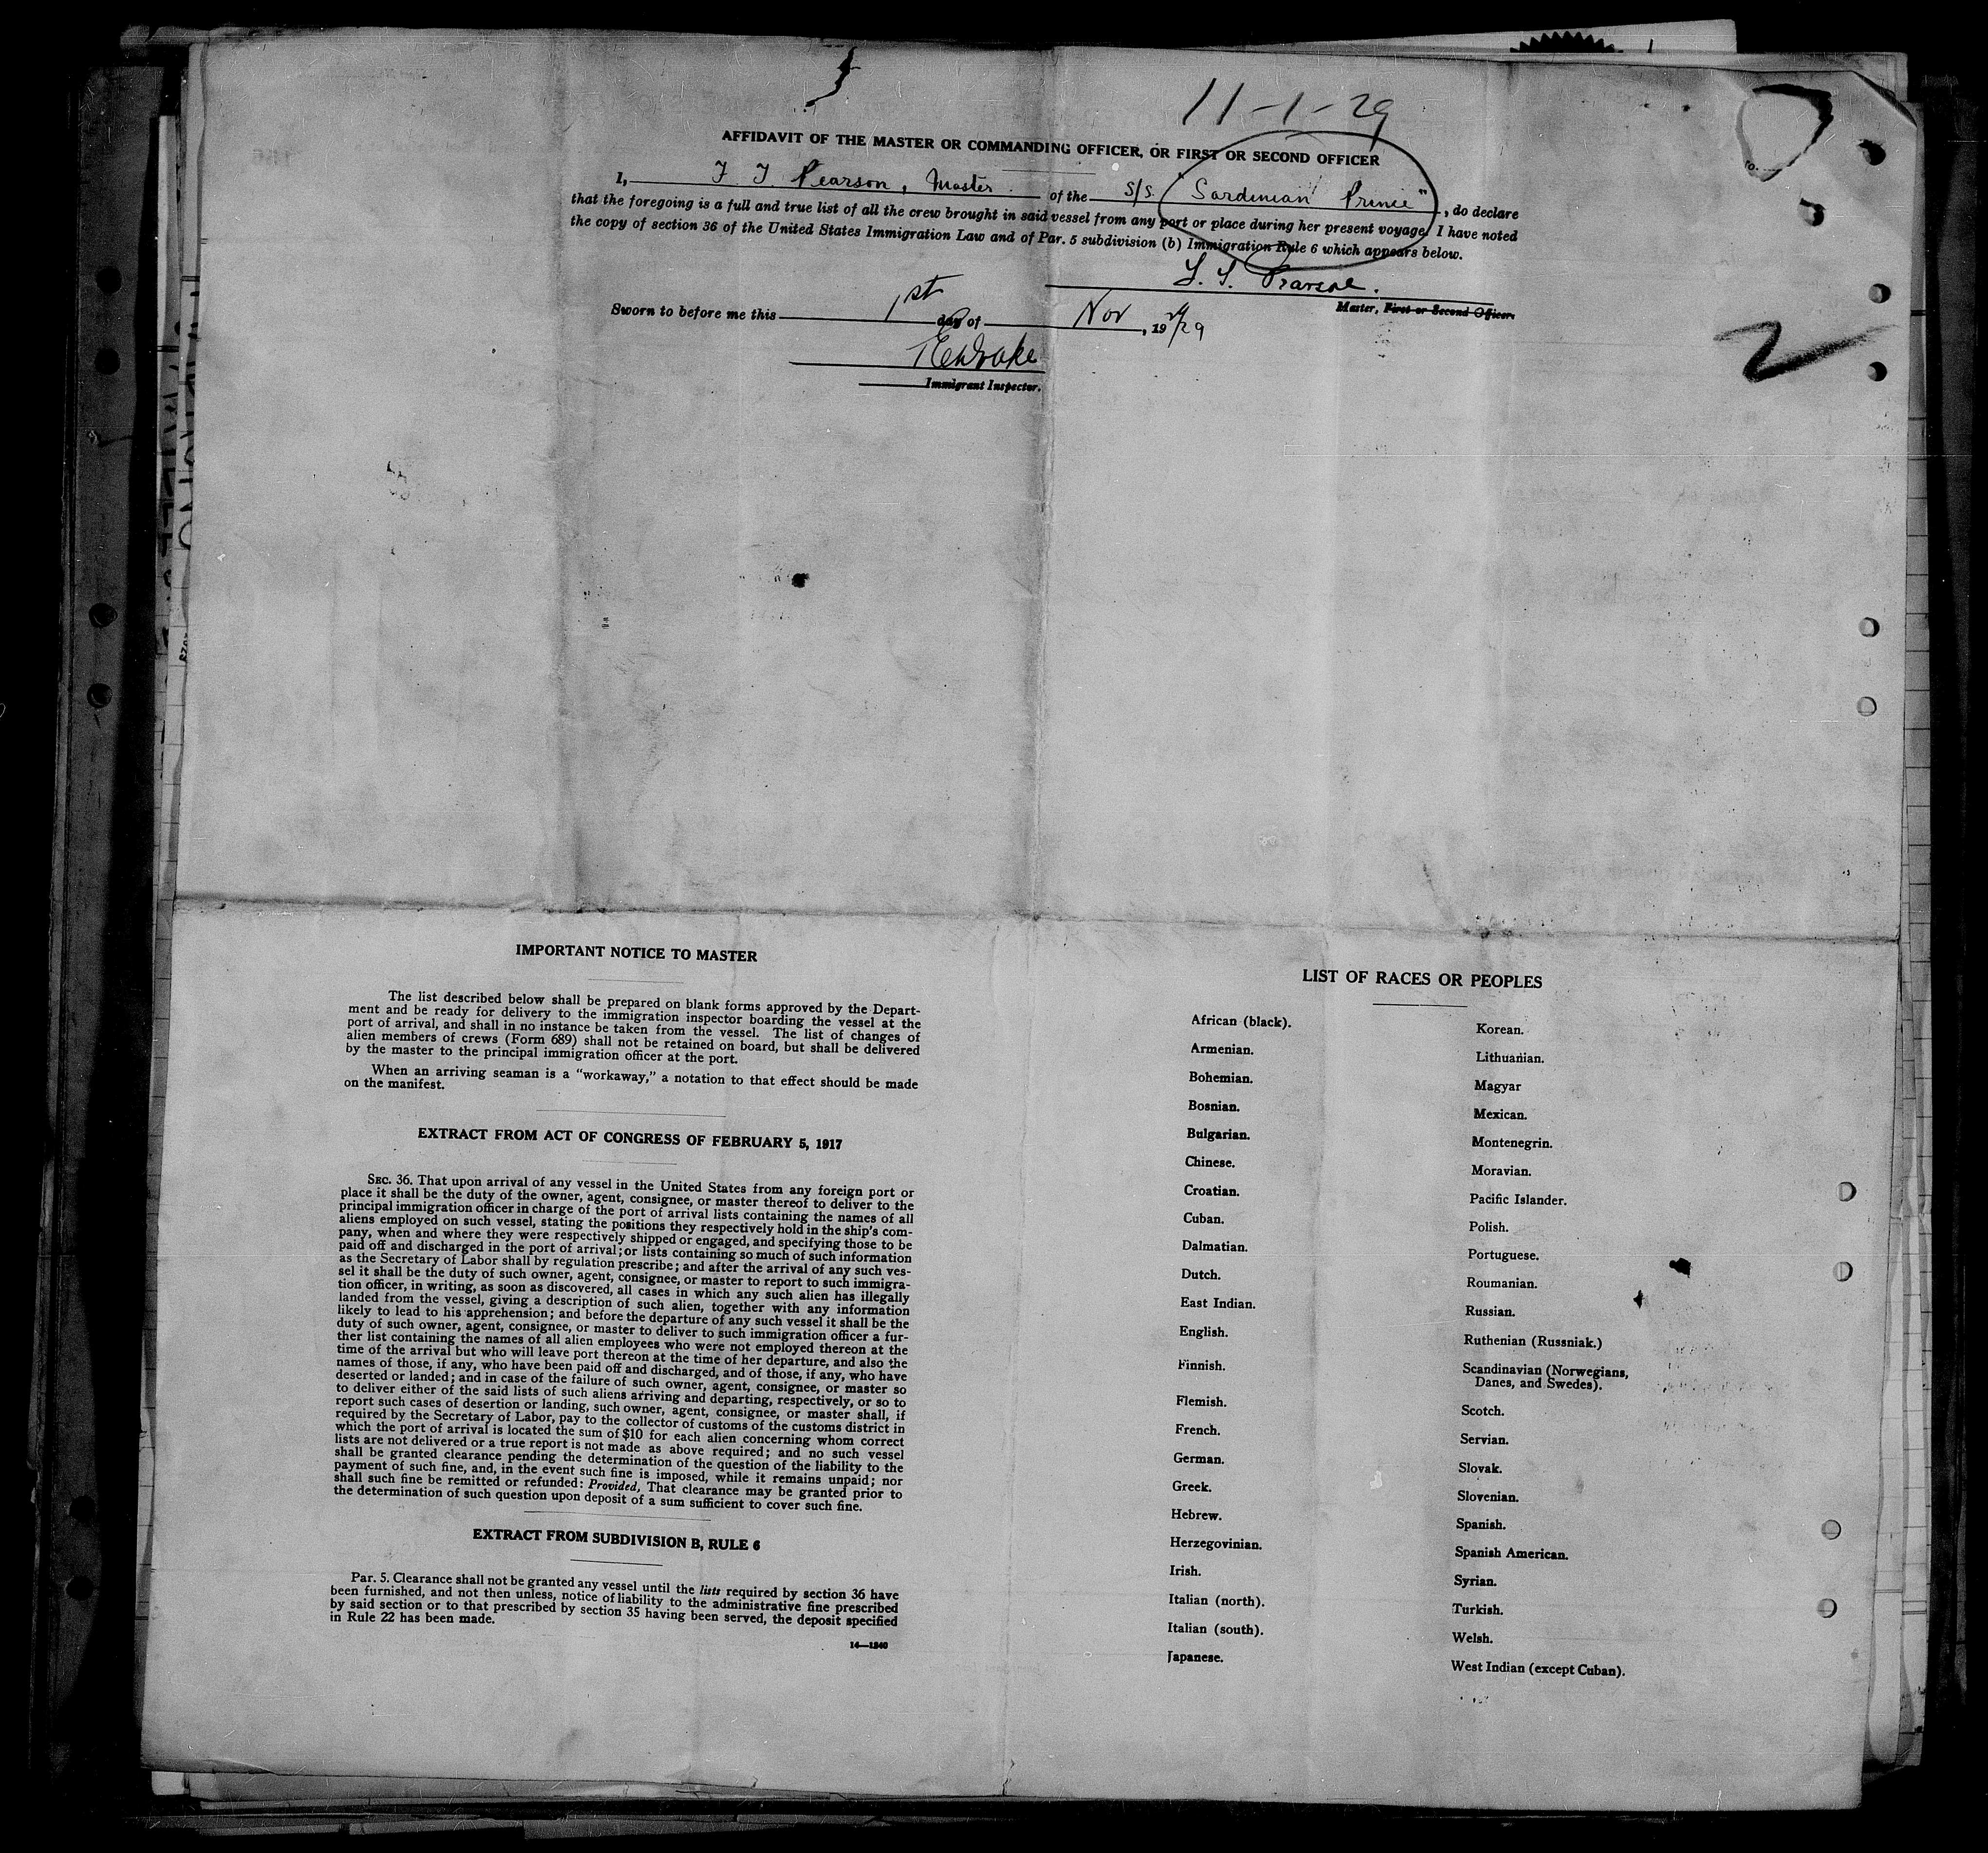 11-1-29
AFFIDAVIT OF THE MASTER OR COMMANDING OFFICER, OR FIRST OR SECOND OFFICER
I, Pearson, Master of the S/S. "Sardinian Prince", do declare
that the foregoing is a full and true list of all the crew brought in said vessel from any port or place during her present voyage. I have noted
the copy of section 36 of the United States Immigration Law and of Par. 5 subdivision (b) Immigration Rule 6 which appears below.
Pearson.
Master, First or Second Officer.
Sworn to before me this 1st day of Nov, 1929
Immigrant Inspector.
2
IMPORTANT NOTICE TO MASTER
The list described below shall be prepared on blank forms approved by the Depart-
ment and be ready for delivery to the immigration inspector boarding the vessel at the
port of arrival, and shall in no instance be taken from the vessel. The list of changes of
alien members of crews (Form 689) shall not be retained on board, but shall be delivered
by the master to the principal immigration officer at the port.
When an arriving seaman is a "workaway," a notation to that effect should be made
on the manifest.
EXTRACT FROM ACT OF CONGRESS OF FEBRUARY 5, 1917
SEC. 36. That upon arrival of any vessel in the United States from any foreign port or
place it shall be the duty of the owner, agent, consignee, or master thereof to deliver to the
principal immigration officer in charge of the port of arrival lists containing the names of all
aliens employed on such vessel, stating the positions they respectively hold in the ship's com-
pany, when and where they were respectively shipped or engaged, and specifying those to be
paid off and discharged in the port of arrival; or lists containing so much of such information
as the Secretary of Labor shall by regulation prescribe; and after the arrival of any such ves-
sel it shall be the duty of such owner, agent, consignee, or master to report to such immigra-
tion officer, in writing, as soon as discovered, all cases in which any such alien has illegally
landed from the vessel, giving a description of such alien, together with any information
likely to lead to his apprehension; and before the departure of any such vessel it shall be the
duty of such owner, agent, consignee, or master to deliver to such immigration officer a fur-
ther list containing the names of all alien employees who were not employed thereon at the
time of the arrival but who will leave port thereon at the time of her departure, and also the
names of those, if any, who have been paid off and discharged, and of those, if any, who have
deserted or landed; and in case of the failure of such owner, agent, consignee, or master so
to deliver either of the said lists of such aliens arriving and departing, respectively, or so to
report such cases of desertion or landing, such owner, agent, consignee, or master shall, if
required by the Secretary of Labor, pay to the collector of customs of the customs district in
which the port of arrival is located the sum of $10 for each alien concerning whom correct
lists are not delivered or a true report is not made as above required; and no such vessel
shall be granted clearance pending the determination of the question of the liability to the
payment of such fine, and, in the event such fine is imposed, while it remains unpaid; nor
shall such fine be remitted or refunded: Provided, That clearance may be granted prior to
the determination of such question upon deposit of a sum sufficient to cover such fine.
EXTRACT FROM SUBDIVISION B, RULE 6
Par. 5. Clearance shall not be granted any vessel until the lists required by section 36 have
been furnished, and not then unless, notice of liability to the administrative fine prescribed
by said section or to that prescribed by section 35 having been served, the deposit specified
in Rule 22 has been made.
14—1240
LIST OF RACES OR PEOPLES
African (black).
Armenian.
Bohemian.
Bosnian.
Bulgarian.
Chinese.
Croatian.
Cuban.
Dalmatian.
Dutch.
East Indian.
English.
Finnish.
Flemish.
French.
German.
Greek.
Hebrew.
Herzegovinian.
Irish.
Italian (north).
Italian (south).
Japanese.
Korean.
Lithuanian.
Magyar
Mexican.
Montenegrin.
Moravian.
Pacific Islander.
Polish.
Portuguese.
Roumanian.
Russian.
Ruthenian (Russniak.)
Scandinavian (Norwegians,
Danes, and Swedes).
Scotch.
Servian.
Slovak.
Slovenian.
Spanish.
Spanish American.
Syrian.
Turkish.
Welsh.
West Indian (except Cuban).